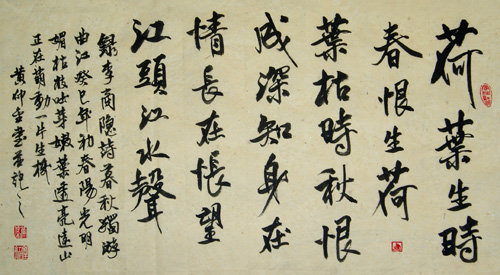 荷葉生時
春恨生荷
葉枯時秋恨
成深知身在
情長在悵望
江頭江水聲
錄李商隐詩暮秋獨遊
曲江癸巳年初春陽光明
媚枯枝吐芽嫩葉透亮遠山
正在萌動一片生機
黄仲金書